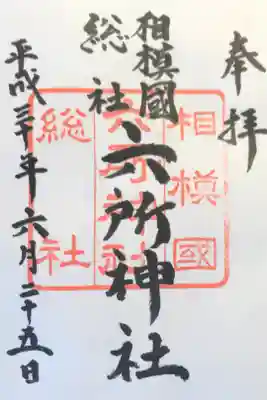 奉拝
相模國
総社
六所神社
平成三十年六月二十五日
相模國
六所神社
総社